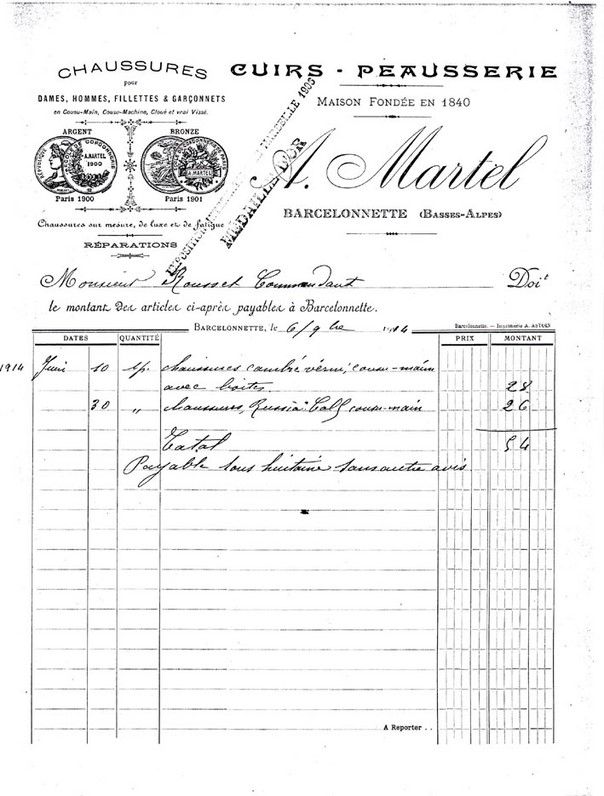 CHAUSSURES
pour
DAMES, HOMMES, FILLETTES & GARÇONNETS
en Cousu-Main, Cousu-Machine, Cloué et vrai Vissé.
ARGENT BRONZE
A.MARTEL
1900
A. MARTEL
Paris 1900 Paris 1901
Chaussures sur mesure, de luxe et de fatigue
RÉPARATIONS
MARSEILLE 1905
MÉDAILLE D'OR
CUIRS - PEAUSSERIE
MAISON FONDÉE EN 1840
A. Martel
BARCELONNETTE (BASSES-ALPES)
Monsieur Rousset Commandant Doit
le montant des articles ci-après payables à Barcelonnette.
BARCELONNETTE, le 6/9bre 1914
Barcelonnette. — Imprimerie A. ASTOIN
DATES QUANTITÉ PRIX MONTANT
1914 Juin 10 1p. chaussures cambré verni, cousu-main
avec boites 28
30 „ chaussures, Russia Calf cousu-main 26
Total 54
Payable sous huitaine sans autre avis
A Reporter . .